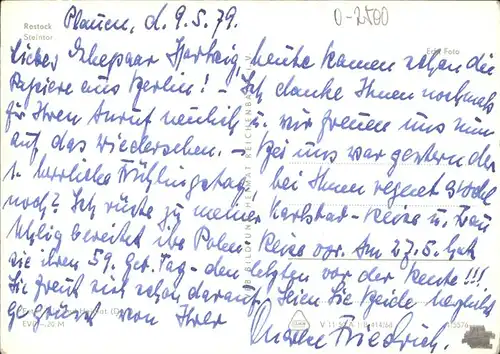 Rostock
Steintor
Plauen, d. 9.5.79.
0-2500
Echt Foto
Liebes Ehepaar Hartwig, heute kamen schon die
Papiere aus Berlin! – Ich danke Ihnen nochmals
für Ihren Anruf neulich u. wir freuen uns nun
auf das Wiedersehen. – Bei uns war gestern der
1. herrliche Frühlingstag, bei Ihnen regnet
noch? Ich rüste zu meiner Karlstad-Reise u. Frau
bereitet ihre Polen Reise vor. Am 27.5. hat
sie ihren 59. Geb. Tag – den letzten vor der Rente!!!
Sie freut sich schon darauf. Seien Sie beide herzlichst
gegrüsst von Ihrer
Friedrich.
BILD UND HEIMAT REICHENBACH
V 11